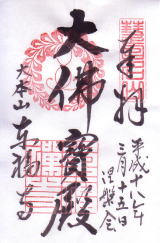 奉拝
平成十八年
三月十五日
涅槃会
大佛寳殿
大本山
東福寺